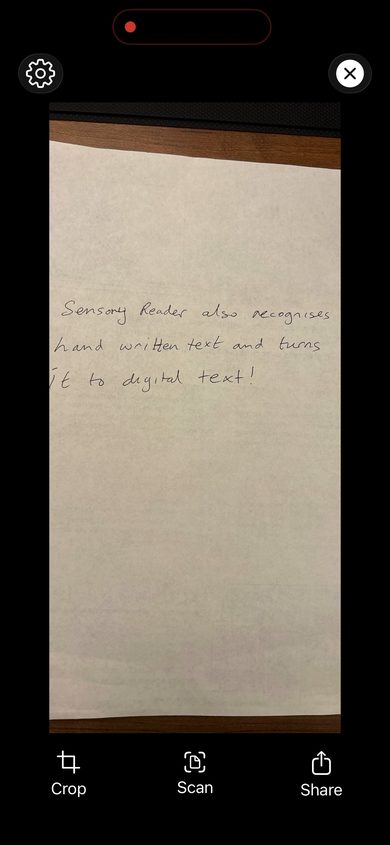 Sensory Reader also recognises
hand written text and turns
it to digital text!
Crop Scan Share